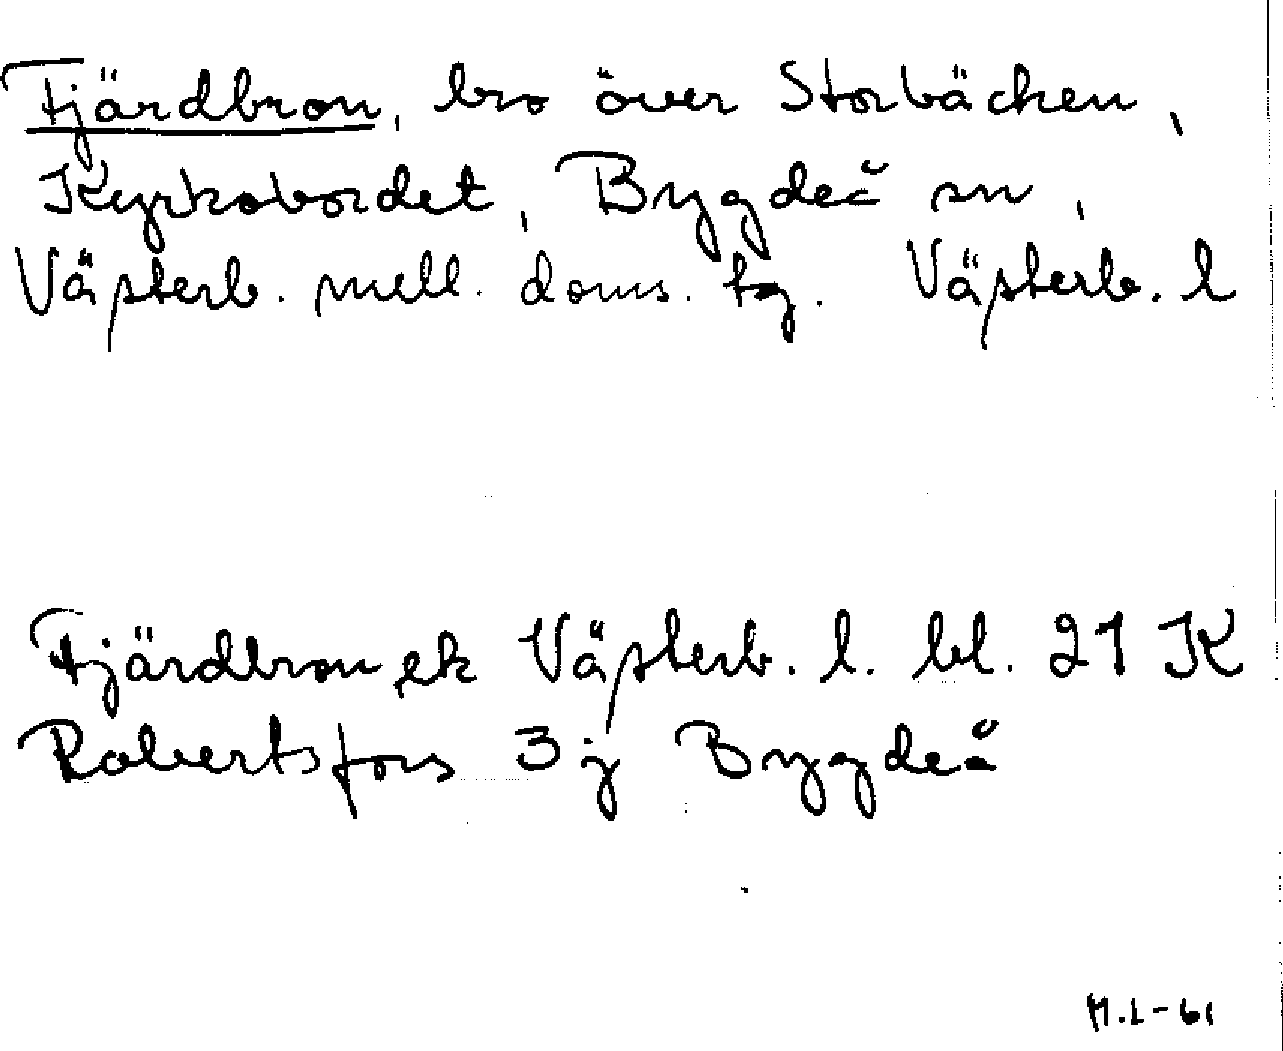 Fjärdbron, bro över Storbäcken,
Kyrkobordet, Bygdeå sn,
Västerb. mell. doms. tg. Västerb. l
Fjärdbron ek Västerb. l. bl. 21 K
Robertsfors 3 j Bygdeå
M.L-61